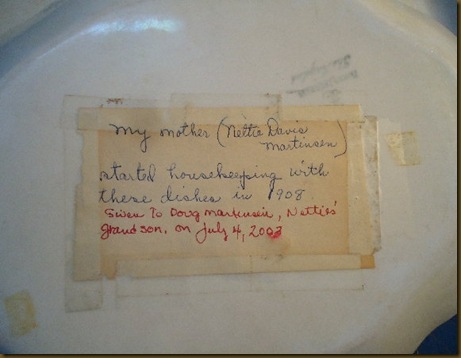 My mother (Nettie Davis
Martinsen)
started housekeeping with
these dishes in 1908
Given To Doug Martinsen, Nettie's
grandson, on July 4, 2003